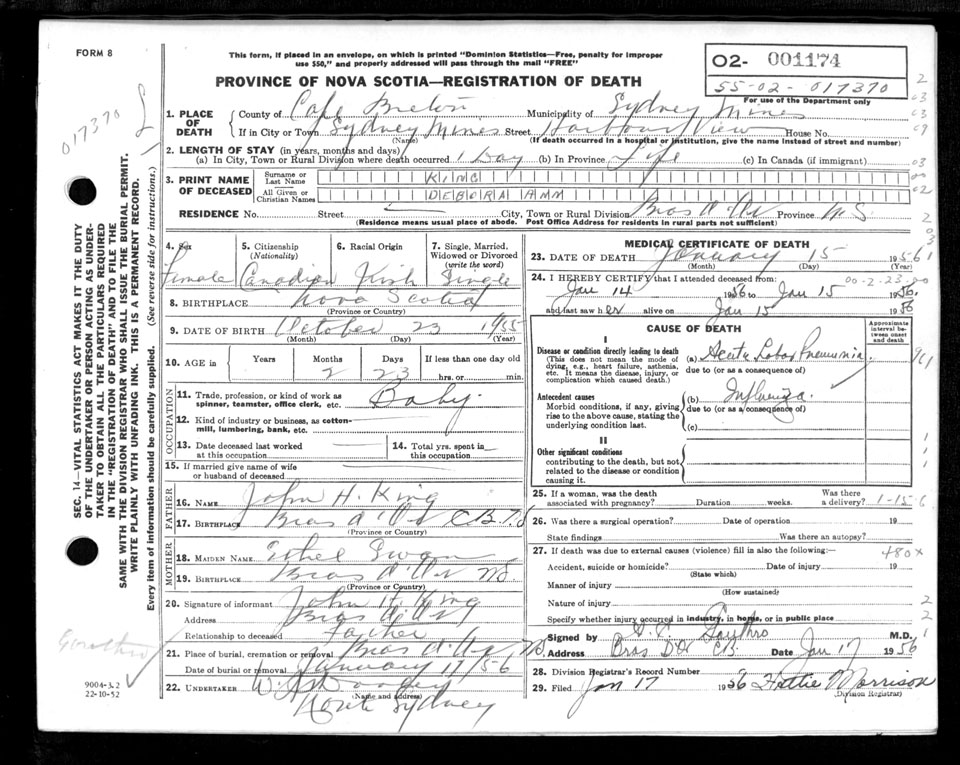 FORM 8
This form, if placed in an envelope, on which is printed "Dominion Statistics—Free, penalty for improper
use $50," and properly addressed will pass through the mail "FREE"
PROVINCE OF NOVA SCOTIA—REGISTRATION OF DEATH
02- 001174
55-02-017370
For use of the Department only
017370
SEC. 14—VITAL STATISTICS ACT MAKES IT THE DUTY
OF THE UNDERTAKER OR PERSON ACTING AS UNDER-
TAKER TO OBTAIN ALL THE PARTICULARS REQUIRED
IN THE "REGISTRATION OF DEATH" AND TO FILE THE
SAME WITH THE DIVISION REGISTRAR WHO SHALL ISSUE THE BURIAL PERMIT.
WRITE PLAINLY WITH UNFADING INK. THIS IS A PERMANENT RECORD.
Every item of information should be carefully supplied. (See reverse side for instructions.)
1. PLACE OF DEATH County of Cape Breton Municipality of Sydney Mines
If in City or Town Sydney Mines Street Harbour View House No.
(Name) (If death occurred in a hospital or institution, give the name instead of street and number)
2. LENGTH OF STAY (in years, months and days)
(a) In City, Town or Rural Division where death occurred 1 Day (b) In Province Life (c) In Canada (if immigrant)
3. PRINT NAME OF DECEASED
Surname or Last Name KING
All Given or Christian Names DEBORAH ANN
RESIDENCE No. Street City, Town or Rural Division Bras d'Or Province N.S.
(Residence means usual place of abode. Post Office Address for residents in rural parts not sufficient)
4. Sex Female
5. Citizenship (Nationality) Canadian
6. Racial Origin Irish
7. Single, Married, Widowed or Divorced (write the word) Single
8. BIRTHPLACE Nova Scotia
(Province or Country)
9. DATE OF BIRTH October 23 1955
(Month) (Day) (Year)
10. AGE in Years Months 2 Days 23 If less than one day old hrs. or min.
OCCUPATION
11. Trade, profession, or kind of work as spinner, teamster, office clerk, etc. Baby
12. Kind of industry or business, as cotton-mill, lumbering, bank, etc.
13. Date deceased last worked at this occupation
14. Total yrs. spent in this occupation
15. If married give name of wife or husband of deceased
FATHER
16. NAME John H. King
17. BIRTHPLACE Bras d'Or C.B. N.S.
(Province or Country)
MOTHER
18. MAIDEN NAME Ethel
19. BIRTHPLACE Bras d'Or N.S.
(Province or Country)
20. Signature of informant John H King
Address Bras d'Or
Relationship to deceased Father
21. Place of burial, cremation or removal Bras d'Or N.S.
Date of burial or removal January 17/56
22. UNDERTAKER
(Name and address)
North Sydney
9004-3.2
22-10-52
MEDICAL CERTIFICATE OF DEATH
23. DATE OF DEATH January 15 1956
(Month) (Day) (Year)
24. I HEREBY CERTIFY that I attended deceased from:
Jan 14 1956 to Jan 15 1956.
and last saw her alive on Jan 15 1956
CAUSE OF DEATH
Approximate interval between onset and death
I
Disease or condition directly leading to death (a) Acute Lobar Pneumonia
(This does not mean the mode of dying, e.g., heart failure, asthenia, etc. It means the disease, injury, or complication which caused death.)
due to (or as a consequence of)
Antecedent causes (b) Influenza
Morbid conditions, if any, giving rise to the above cause, stating the underlying condition last.
due to (or as a consequence of)
(c)
II
Other significant conditions
contributing to the death, but not related to the disease or condition causing it.
25. If a woman, was the death associated with pregnancy? Duration weeks. Was there a delivery? 1-15-6
26. Was there a surgical operation? Date of operation 19
State findings Was there an autopsy?
27. If death was due to external causes (violence) fill in also the following:— 480x
Accident, suicide or homicide? Date of injury 19
(State which)
Manner of injury
(How sustained)
Nature of injury
Specify whether injury occurred in industry, in home, or in public place
Signed by M.D.
Address Bras D'Or C.B. Date Jan 17 1956
28. Division Registrar's Record Number
29. Filed Jan 17 1956 Hattie Morrison
(Division Registrar)